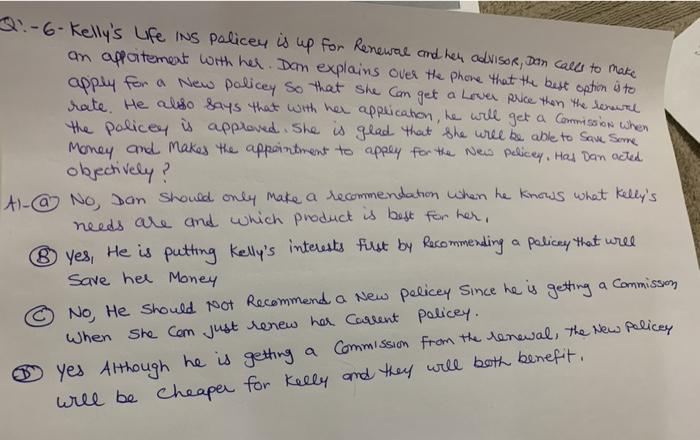 Q:-6- Kelly's Life INS palicey is up For Renewal and her advisor, Dan calls to make
an appoitement with her. Dan explains over the phone that the best option is to
apply for a New palicey so that she can get a Lower price then the renewal
rate. He also says that with her application, he will get a Commission when
the palicey is approved. She is glad that she will be able to Save Some
Money and Makes the appointment to apply for the New Pelicey, Has Dan acted
objectively?
A)-(a) No, Dan Should only Make a recommendation when he knows what Kelly's
needs are and which product is best for her,
(B) yes, He is putting Kelly's interests first by Recommending a palicey that will
Save her Money
(C) No, He Should Not Recommend a New pelicey Since he is getting a Commission
when She Can just renew her Current policey.
(D) yes Although he is getting a Commission from the renewal, the New Policey
will be Cheaper for Kelly and they will both benefit.